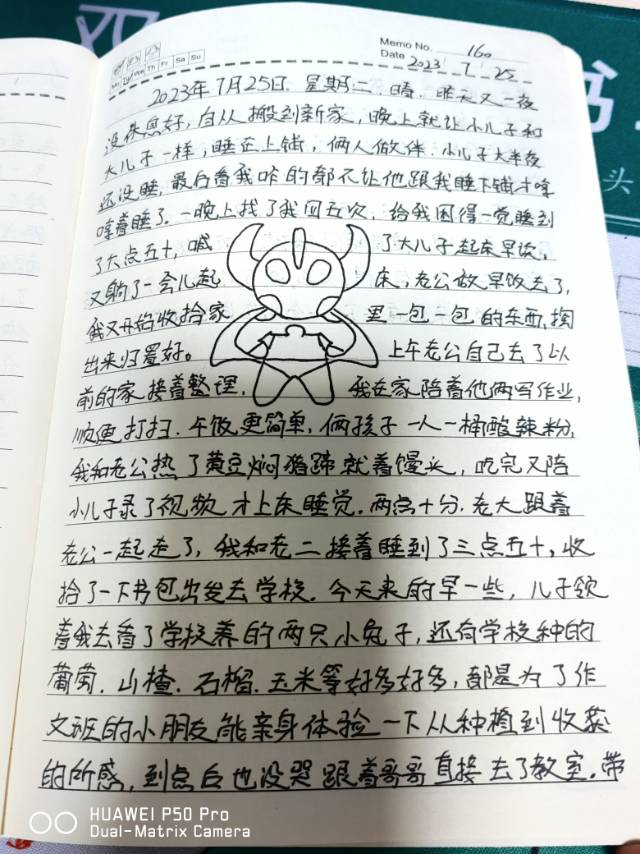 双
书
头
Memo No. 160
Mo Tu We Th Fr Sa Su
Date 2023 7 25
2023年7月25日 星期二 晴 昨天又一夜
没休息好,自从搬到新家,晚上就让小儿子和
大儿子一样,睡在上铺,俩人做伴.小儿子大半夜
还没睡,最后看我咋的都不让他跟我睡下铺才哼
哼着睡了.一晚上找了我四五次,给我困得一觉睡到
了六点五十,喊了大儿子起床早读,
又躺了一会儿起床,老公做早饭去了,
我又开始收拾家里一包一包的东西,掏
出来归置好。上午老公自己去了以
前的家接着整理,我在家陪着他俩写作业,
顺便打扫.午饭更简单,俩孩子一人一桶酸辣粉,
我和老公热了黄豆焖猪蹄就着馒头,吃完又陪
小儿子录了视频才上床睡觉.两点十分.老大跟着
老公一起走了,我和老二接着睡到了三点五十,收
拾了一下书包出发去学校.今天来的早一些,儿子领
着我去看了学校养的两只小兔子,还有学校种的
葡萄.山楂.石榴.玉米等好多好多,都是为了作
文班的小朋友能亲身体验一下从种植到收获
的所感,到点后也没哭跟着哥哥直接去了教室.带
HUAWEI P50 Pro
Dual-Matrix Camera